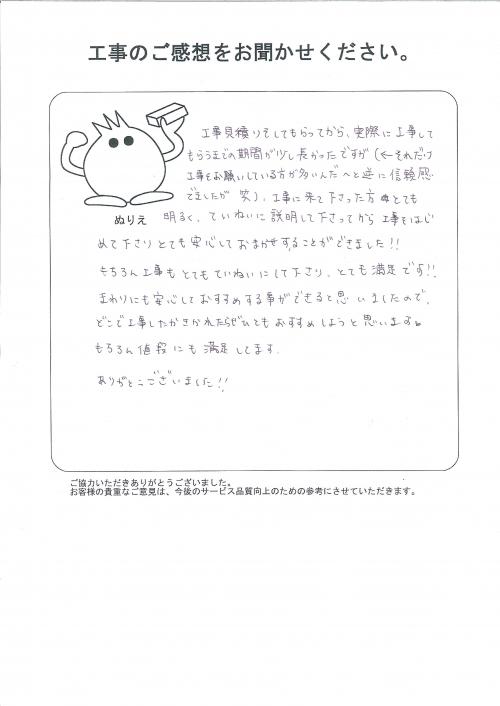 工事のご感想をお聞かせください。
工事見積りをしてもらってから、実際に工事して
もらうまでの期間が少し長かったですが(←それだけ
工事をお願いしている方が多いんだ〜と逆に信頼感
でましたが 笑)、工事に来て下さった方もとても
ぬりえ
明るく、ていねいに説明して下さってから工事をはじ
めて下さりとても安心しておまかせすることができました!!
もちろん工事もとてもていねいにして下さり、とても満足です!!
まわりにも安心しておすすめする事ができると思いましたので、
どこで工事したかきかれたらぜひともおすすめしようと思います。
もちろん値段にも満足してます。
ありがとうございました!!
ご協力いただきありがとうございました。
お客様の貴重なご意見は、今後のサービス品質向上のための参考にさせていただきます。